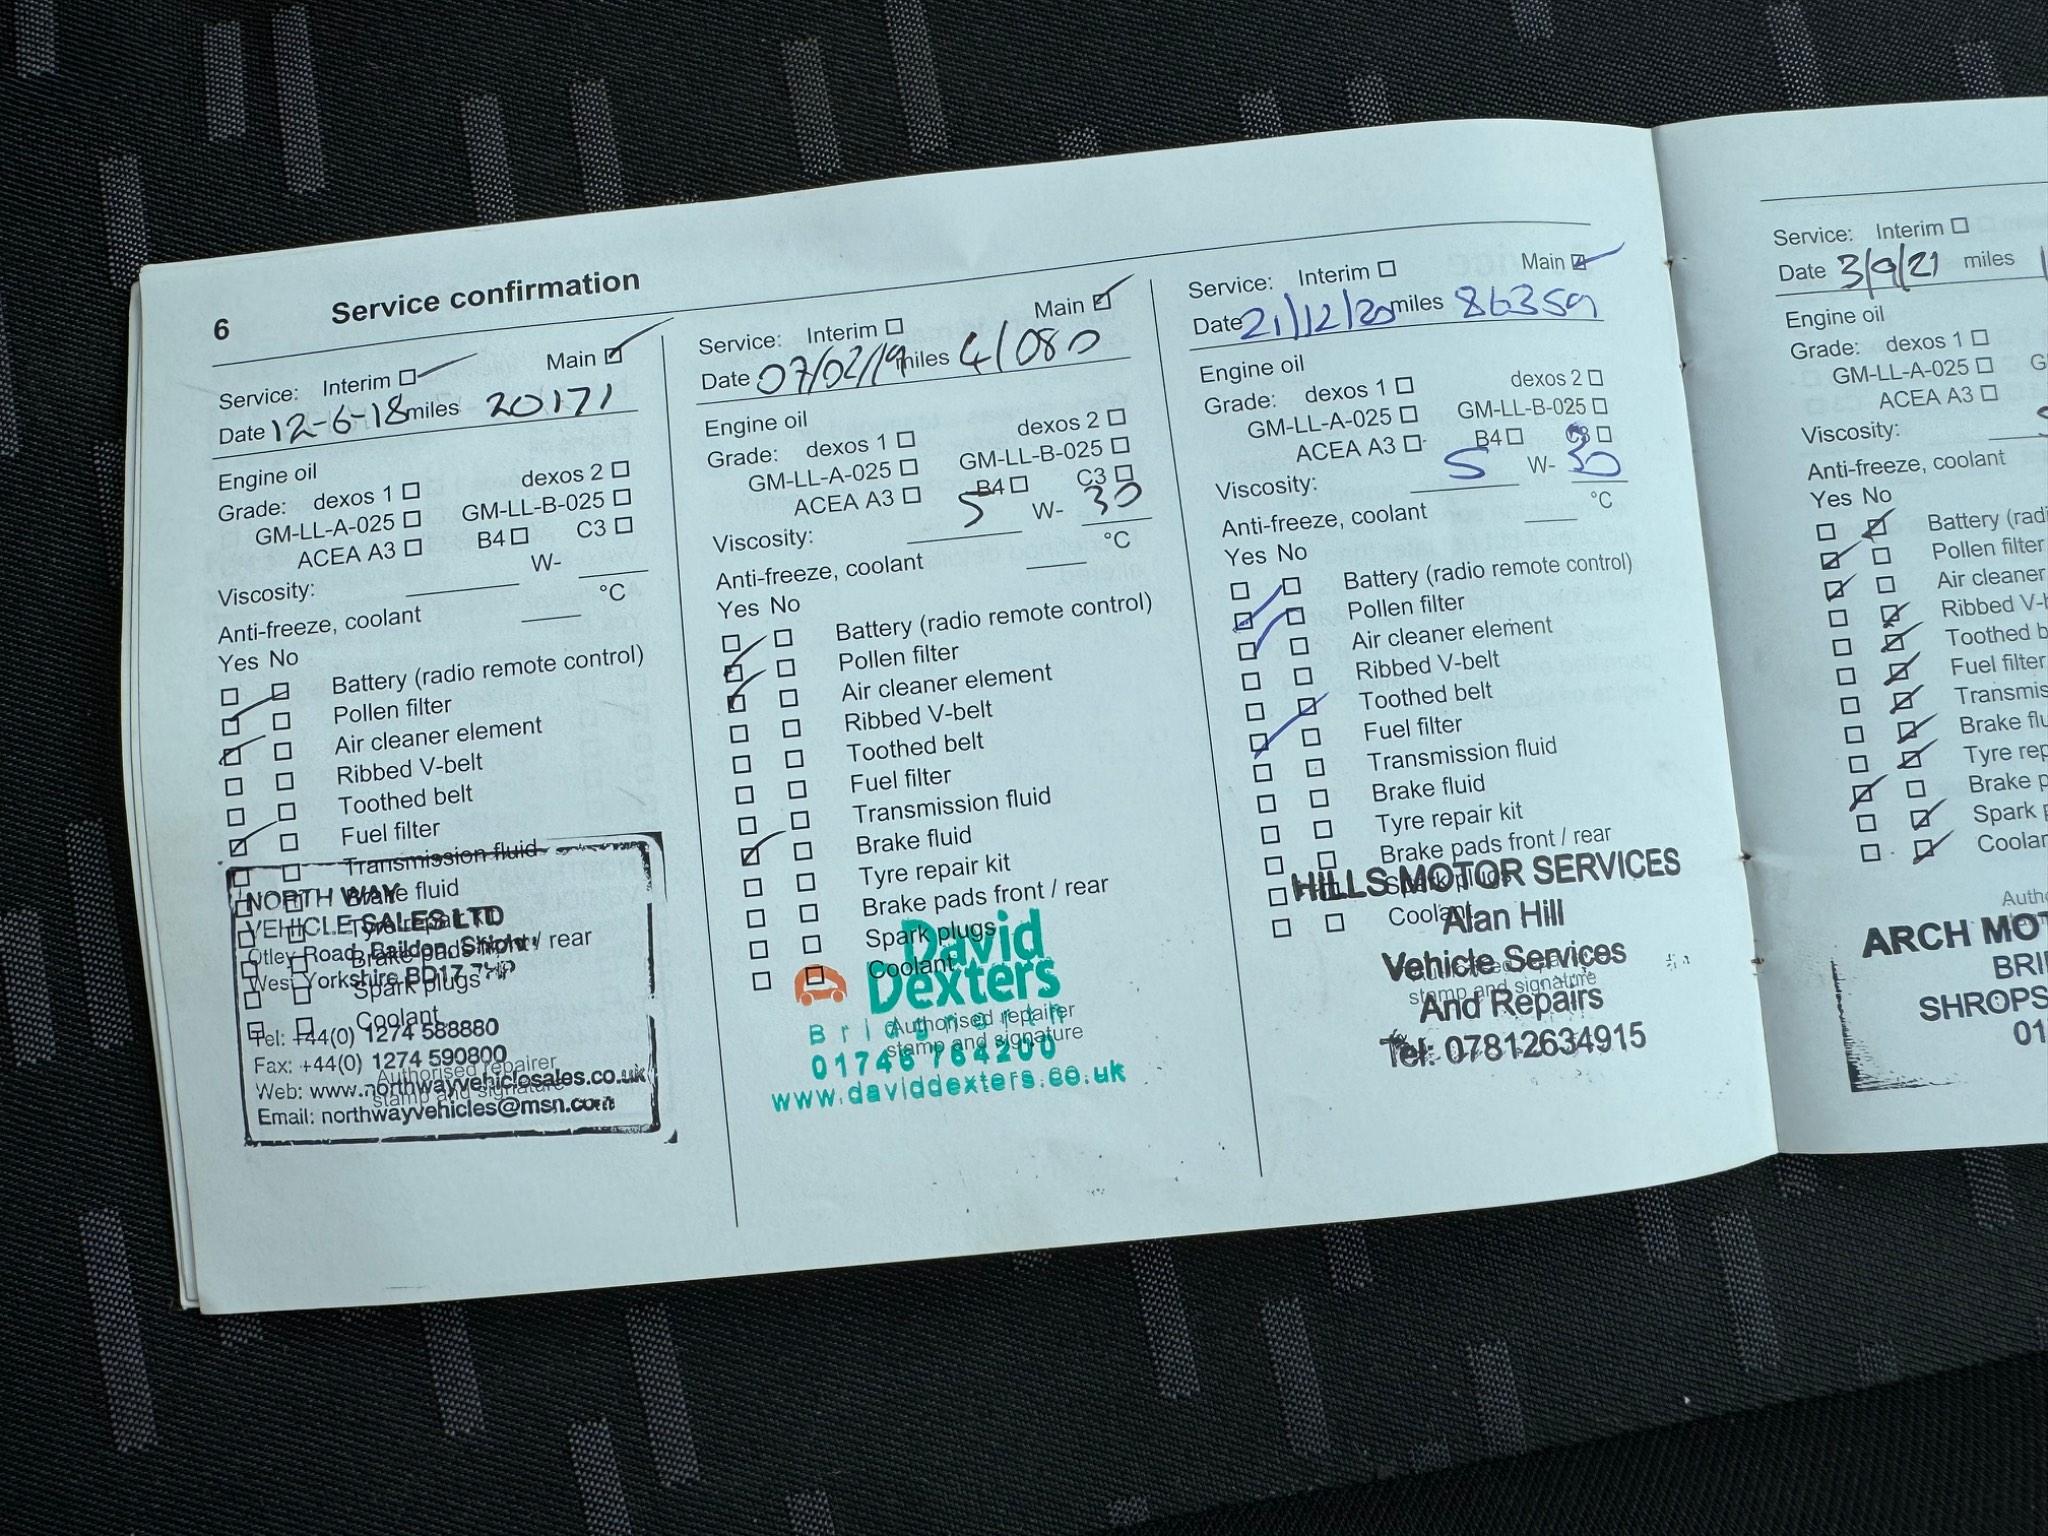 6 Service confirmation
Service: Interim Main
Date 12-6-18 miles 20171
Engine oil
Grade: dexos 1 dexos 2
GM-LL-A-025 GM-LL-B-025
ACEA A3 B4 C3
Viscosity: W-
Anti-freeze, coolant °C
Yes No
Battery (radio remote control)
Pollen filter
Air cleaner element
Ribbed V-belt
Toothed belt
Fuel filter
Transmission fluid
Brake fluid
Tyre repair kit
Brake pads front / rear
Spark plugs
Coolant
Authorised repairer
stamp and signature
NORTH WAY
VEHICLE SALES LTD
Otley Road, Baildon, Shipley
West Yorkshire BD17 7HP
Tel: +44(0) 1274 588880
Fax: +44(0) 1274 590800
Web: www.northwayvehiclesales.co.uk
Email: northwayvehicles@msn.com
Service: Interim Main
Date 07/02/19 miles 41080
Engine oil
Grade: dexos 1 dexos 2
GM-LL-A-025 GM-LL-B-025
ACEA A3 B4 C3
Viscosity: 5 W- 30
Anti-freeze, coolant °C
Yes No
Battery (radio remote control)
Pollen filter
Air cleaner element
Ribbed V-belt
Toothed belt
Fuel filter
Transmission fluid
Brake fluid
Tyre repair kit
Brake pads front / rear
Spark plugs
Coolant
Authorised repairer
stamp and signature
David
Dexters
Bridgnorth
01746 764200
www.daviddexters.co.uk
Service: Interim Main
Date 21/12/20 miles 86359
Engine oil
Grade: dexos 1 dexos 2
GM-LL-A-025 GM-LL-B-025
ACEA A3 B4 C3
Viscosity: 5 W- 30
Anti-freeze, coolant °C
Yes No
Battery (radio remote control)
Pollen filter
Air cleaner element
Ribbed V-belt
Toothed belt
Fuel filter
Transmission fluid
Brake fluid
Tyre repair kit
Brake pads front / rear
Spark plugs
Coolant
stamp and signature
HILLS MOTOR SERVICES
Alan Hill
Vehicle Services
And Repairs
Tel: 07812634915
Service: Interim
Date 3/9/21 miles
Engine oil
Grade: dexos 1
GM-LL-A-025 G
ACEA A3
Viscosity:
Anti-freeze, coolant
Yes No
Battery (radi
Pollen filter
Air cleaner
Ribbed V-b
Toothed b
Fuel filter
Transmis
Brake flu
Tyre rep
Brake p
Spark p
Coolan
Autho
ARCH MOT
BRI
SHROPS
01